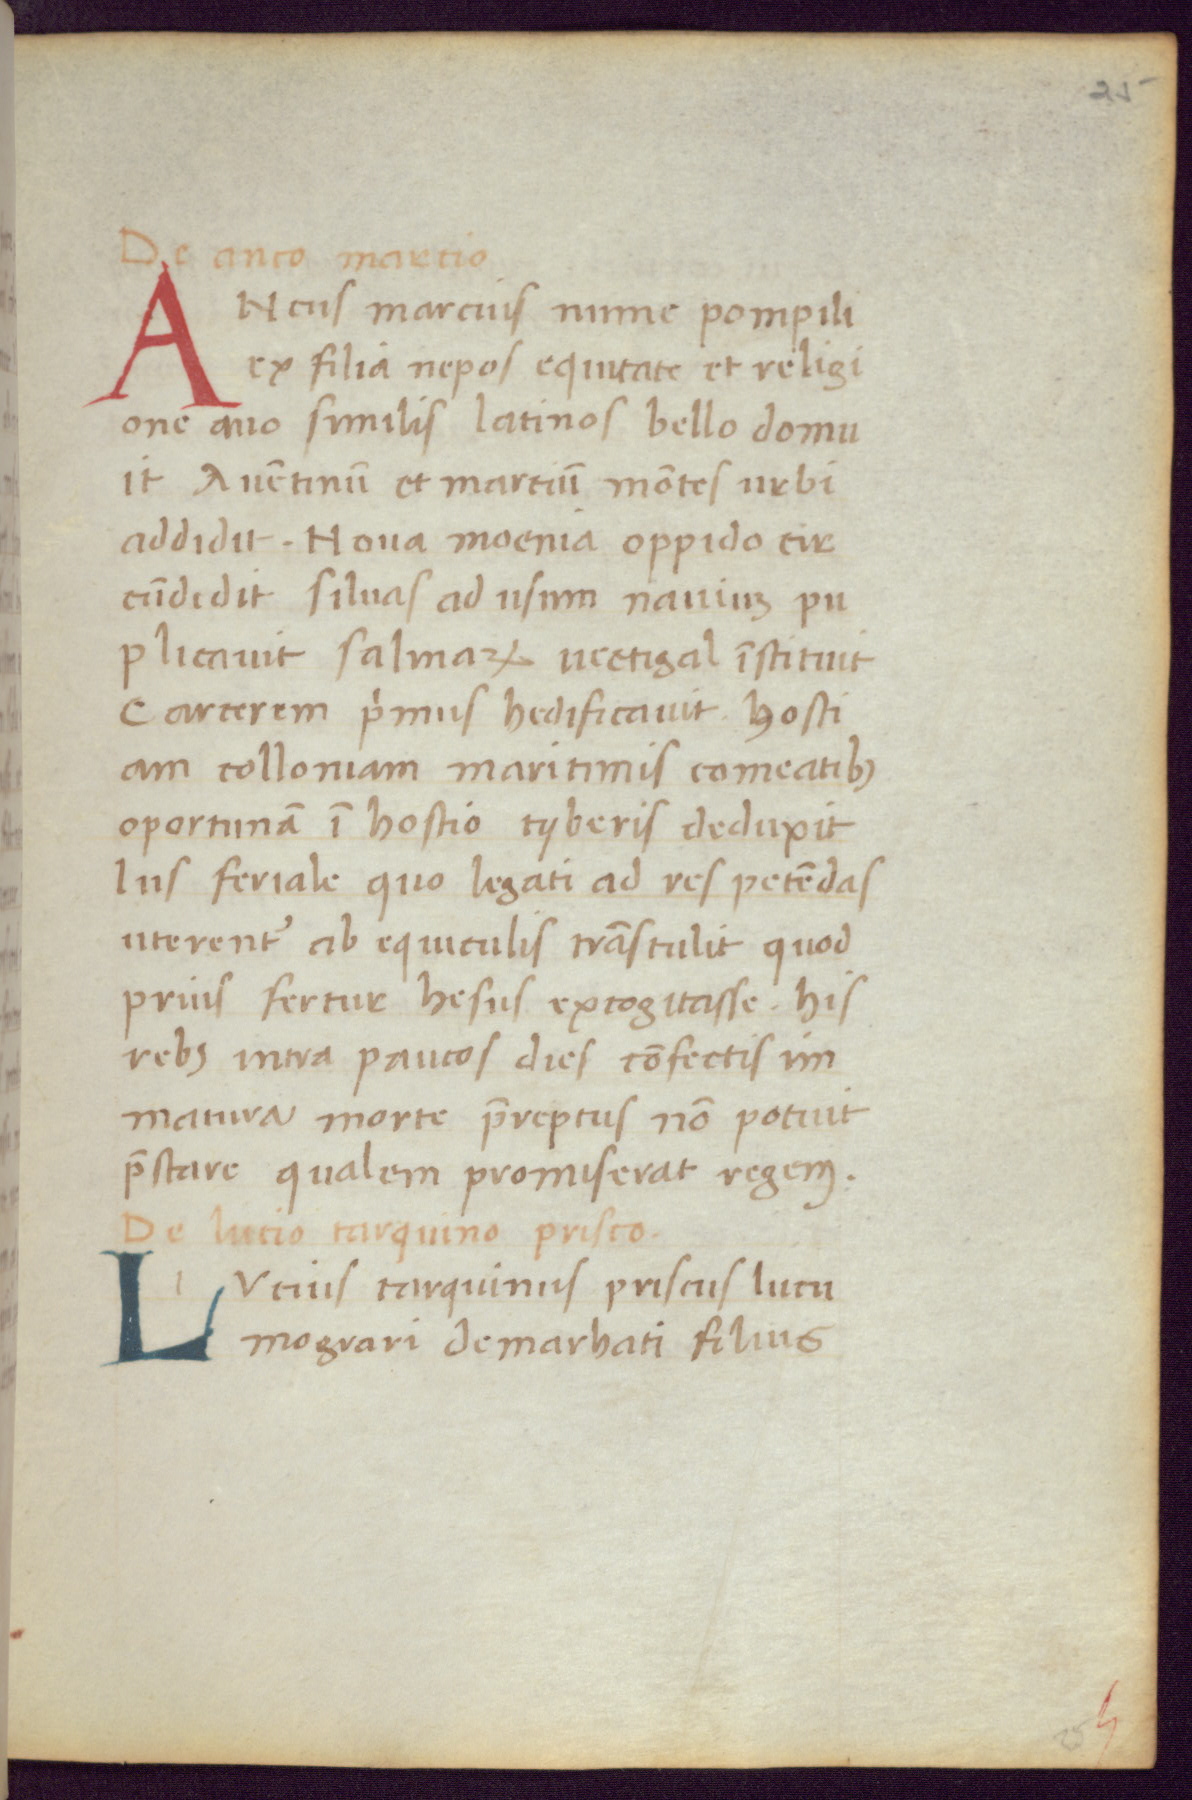 De anco martio
ANcus marcius nume pompili
ex filia nepos equitate et religi
one auo similis latinos bello domu
it Auētinū et martiū mōtes urbi
addidit. Noua moenia oppido cir
cūdedit siluas ad usum nauiuꝫ pu
plicauit salinaꝝ uectigal īstituit
Carcerem pͥmus hedificauit. hosti
am colloniam maritimis comeatibꝫ
oportunā ī hostio tyberis deduxit
Ius feriale quo legati ad res petēdas
uterent᷑ ab equiculis trāstulit quod
prius fertur hesus excogitasse. his
rebꝫ intra paucos dies cōfectis im
matura morte p̄reptus nō potuit
p̄stare qualem promiserat regem.
De lucio tarquino prisco.
LVcius tarquinius priscus lucu
mograri demarhati filius